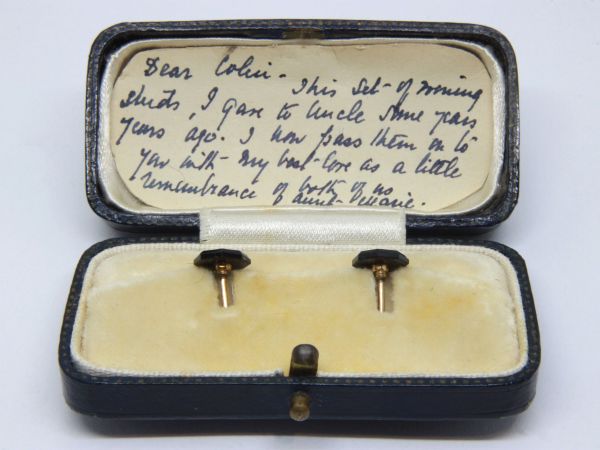 Dear Colin - This set of evening
studs, I gave to Uncle some years
years ago. I now pass them on to
you with my best love as a little
remembrance of both of us
Aunt